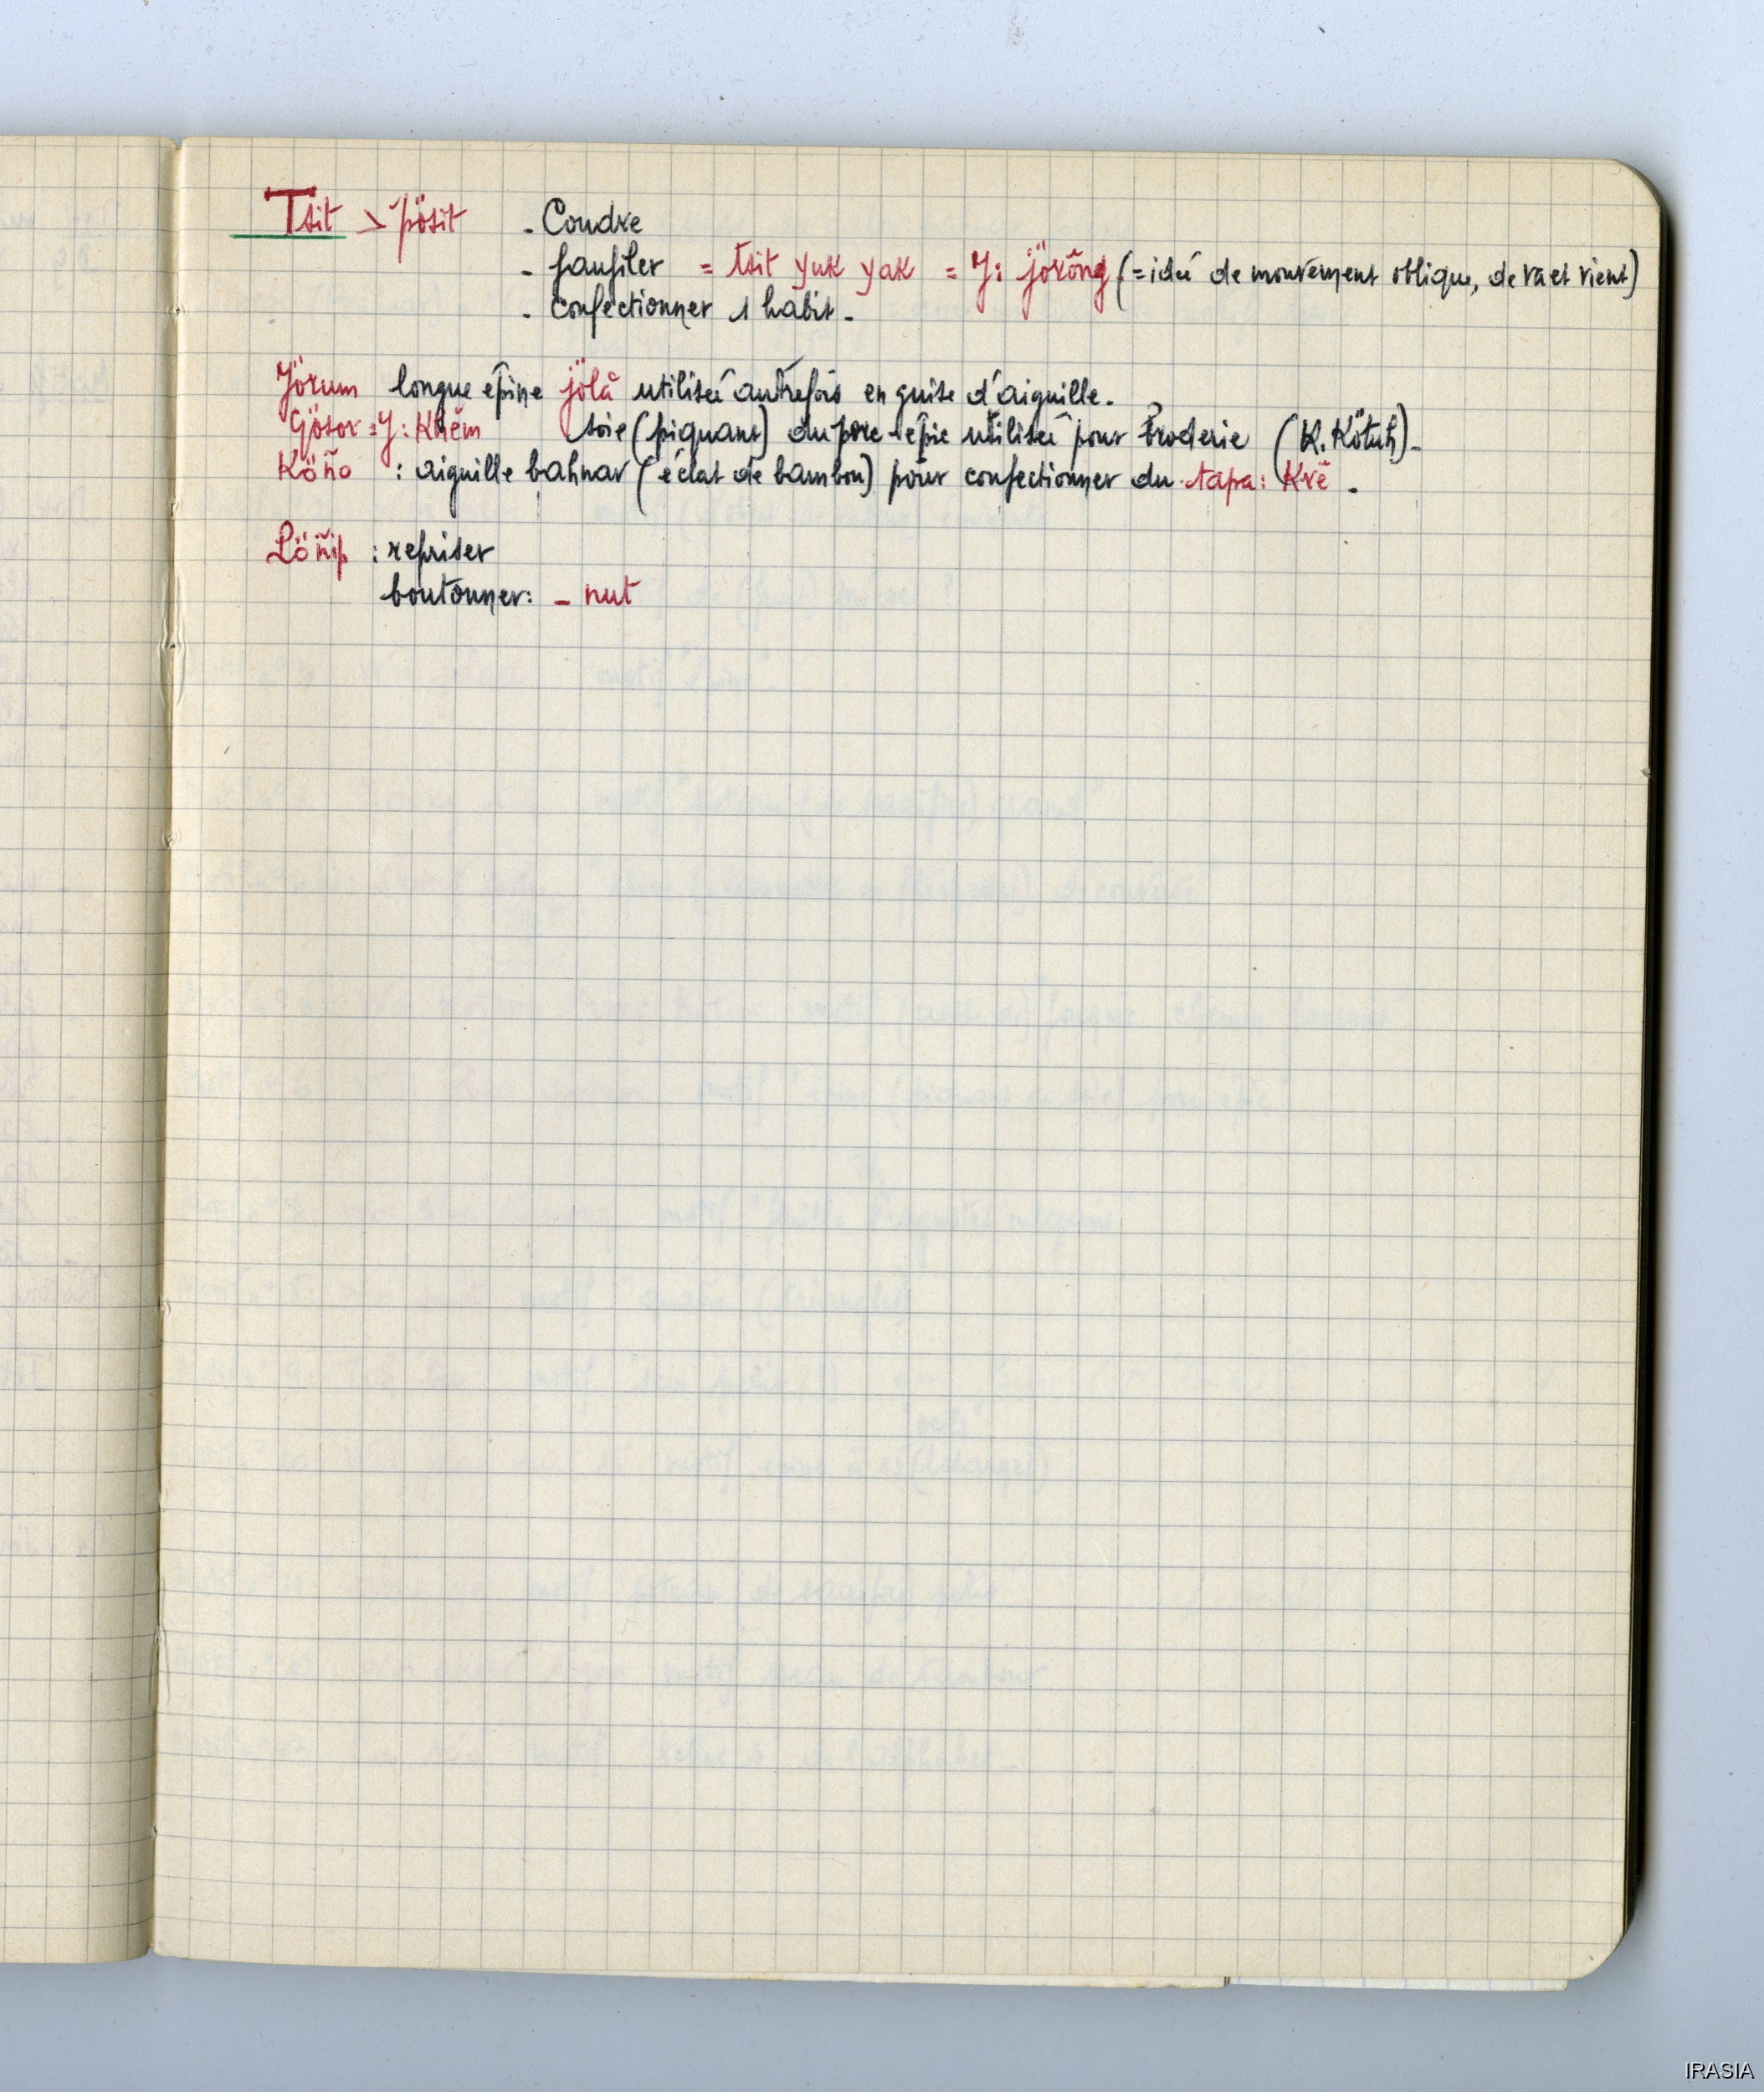 Tsit > pösit - Coudre
- faufiler = tsit yuk yak = J: jörŏng (= idée de mouvement oblique, de va et vient)
- confectionner 1 habit.
Jörum longue épine jölă utilisée autrefois en guise d'aiguille.
Gösor = J: Khĕm soie (piquant) du porc-épic utilisée pour broderie (K. Kötuh).
Köño : aiguille bahnar (éclat de bambou) pour confectionner du tapa: Krĕ.
Löñip : repriser
boutonner: - nut
IRASIA